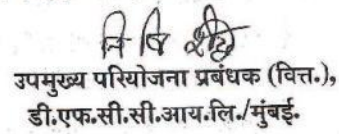 नि वि
उपमुख्य परियोजना प्रबंधक (वित्त.),
डी.एफ.सी.सी.आय.लि./मुंबई.